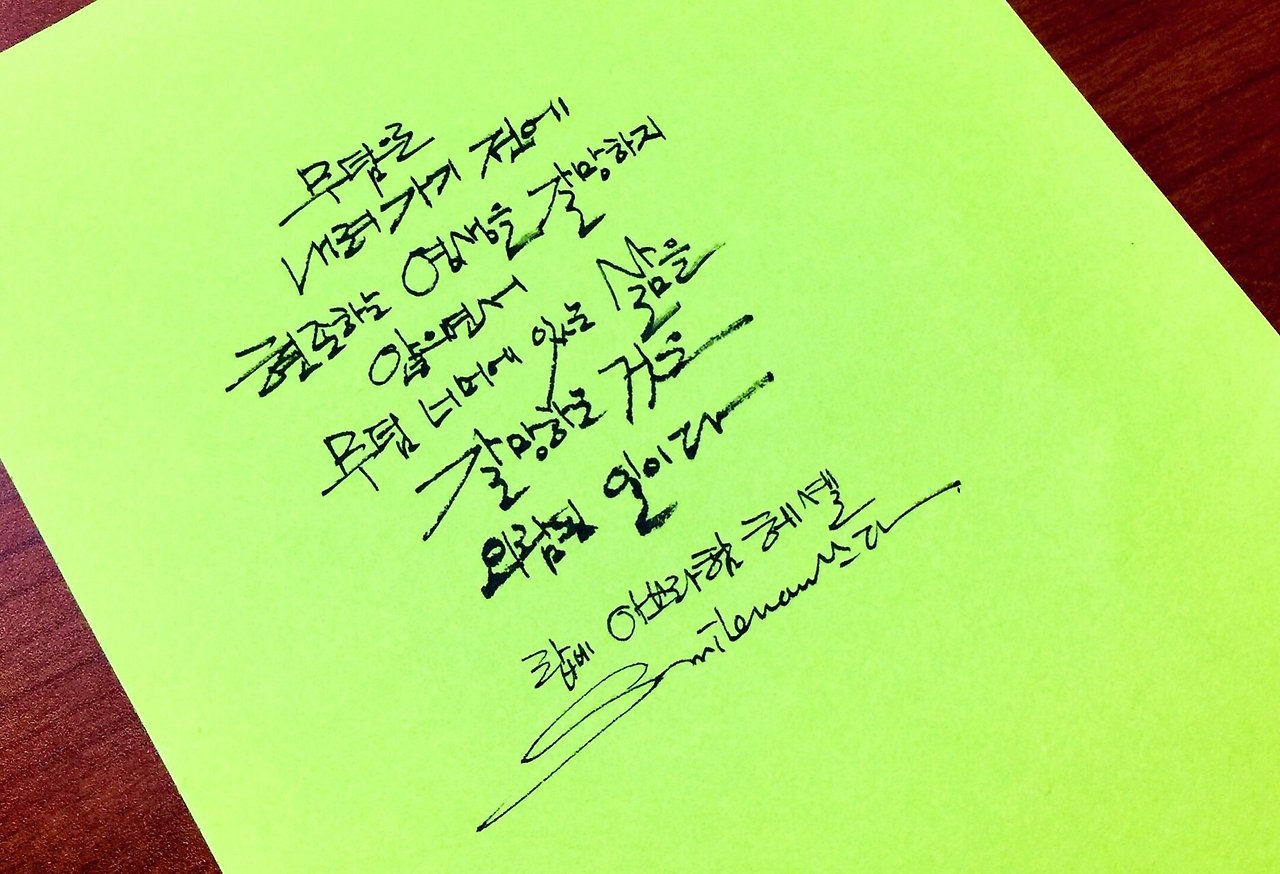 무덤으로
내려가기 전에
현존하는 영생을 갈망하지
않으면서
무덤 너머에 있는 삶을
갈망하는 것은
외람된 일이다
랍비 아브라함 헤셸
Smileman쓰다